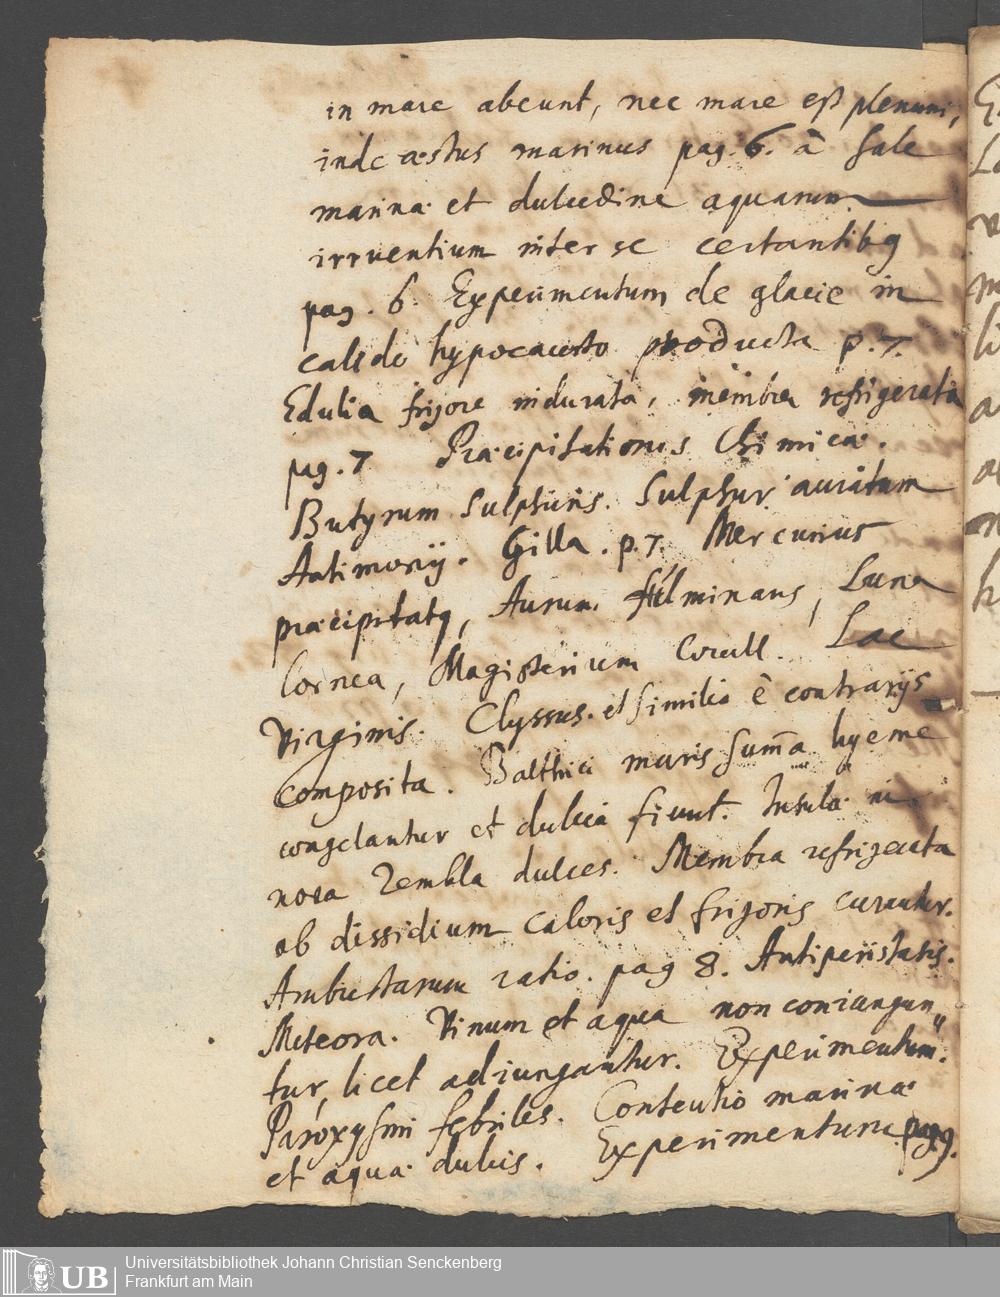 in mare abeunt, nec mare est plenum,
inde æstus marinus pag. 6. â sale
marinæ et dulcedine aquarum
irruentium inter se certantibꝰ
pag. 6. Experimentum de glacie in
calido hypocausto producta p. 7.
Edulia frigore indurata, membra refrigerata
pag. 7 Præcipitationes Chimicæ.
Butyrum Sulphuris. Sulphur auratum
Antimonij. Gilla. p. 7. Mercurius
præcipitatꝰ, Aurum fulminans, Luna
Cornea, Magisterium Corall. Lac
Virginis. Clyssus. et similia ê contrarijs
composita. Balthici maris summa hyeme
congelantur et dulcia fiunt. Insulæ in
nova Zembla dulces. Membra refrigerata
ob dissidium caloris et frigoris curantur.
Ambustarum ratio. pag 8. Antiperistasis.
Meteora. Vinum et aqua non coniungun„
tur, licet adiungantur. Experimentum.
Paroxysmi febriles. Contentio marinæ
et aquæ dulcis. Experimentum pag 9.
Universitätsbibliothek Johann Christian Senckenberg
Frankfurt am Main
UB